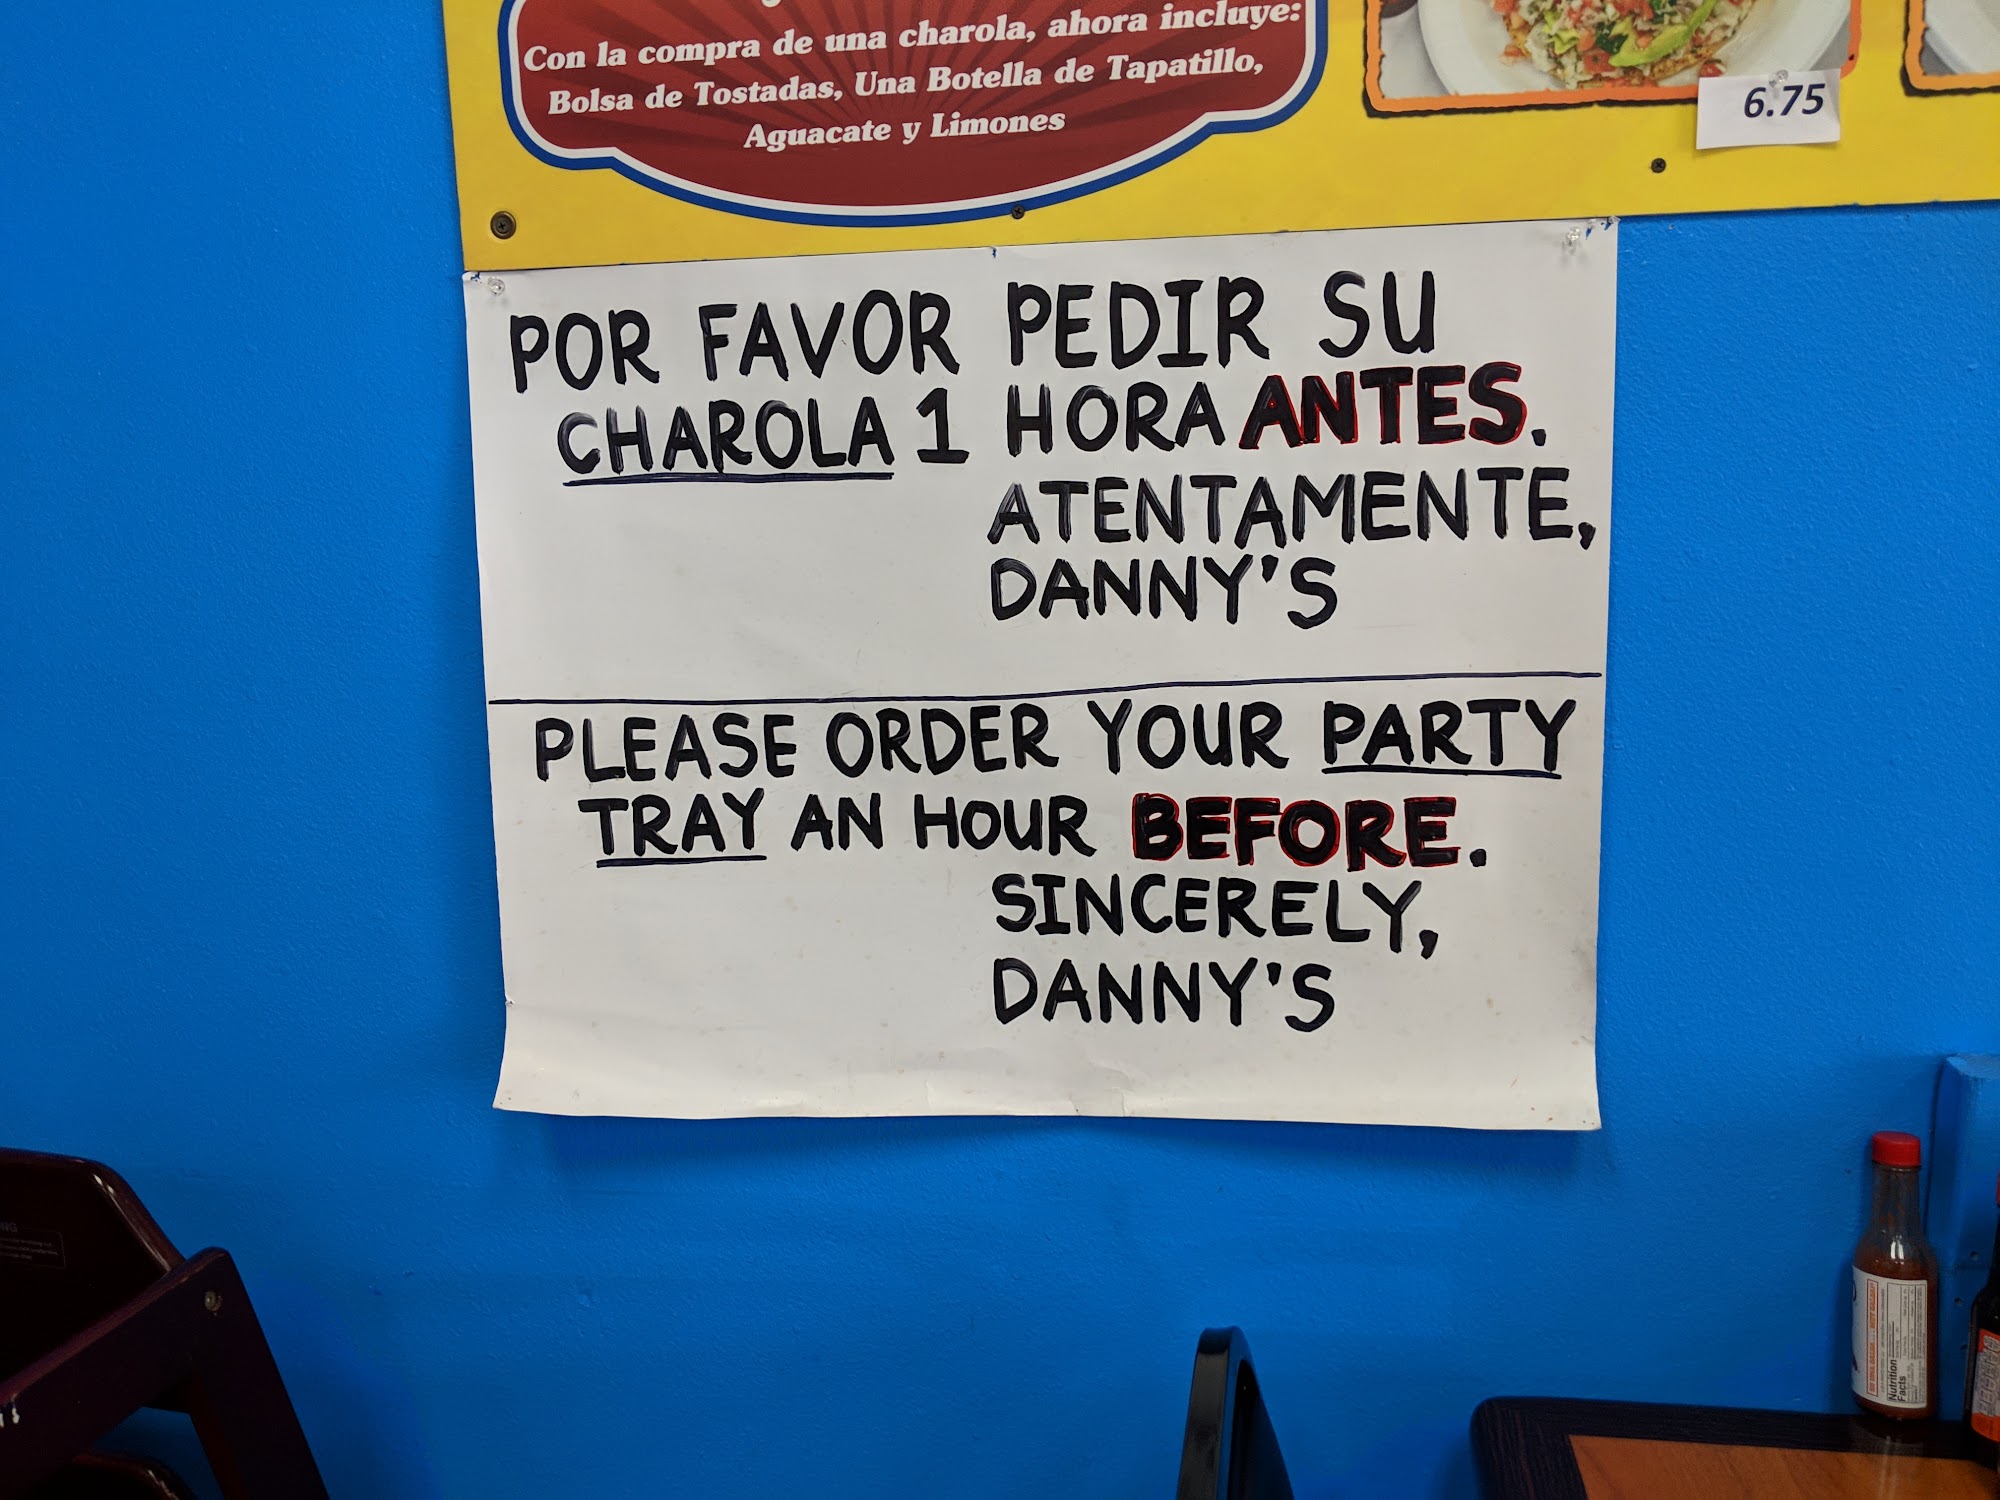 Con la compra de una charola, ahora incluye:
Bolsa de Tostadas, Una Botella de Tapatillo,
Aguacate y Limones
6.75
POR FAVOR PEDIR SU
CHAROLA 1 HORA ANTES.
ATENTAMENTE,
DANNY'S
PLEASE ORDER YOUR PARTY
TRAY AN HOUR BEFORE.
SINCERELY,
DANNY'S
Nutrition
Facts